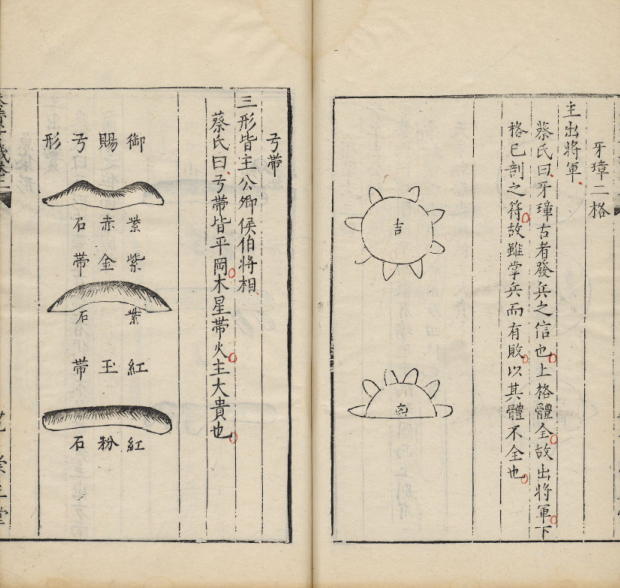 牙璋二格
主出將軍
蔡氏曰牙璋古者發兵之信也上格體全故出將軍下
格已剖之符故雖掌兵而有敗以其體不全也
吉
亐帶
三形皆主公卿侯伯將相
蔡氏曰亐帶皆平岡木星帶火主大貴也
御賜亐形
紫赤石
紫金帶
紫石
紅玉帶
紅粉石